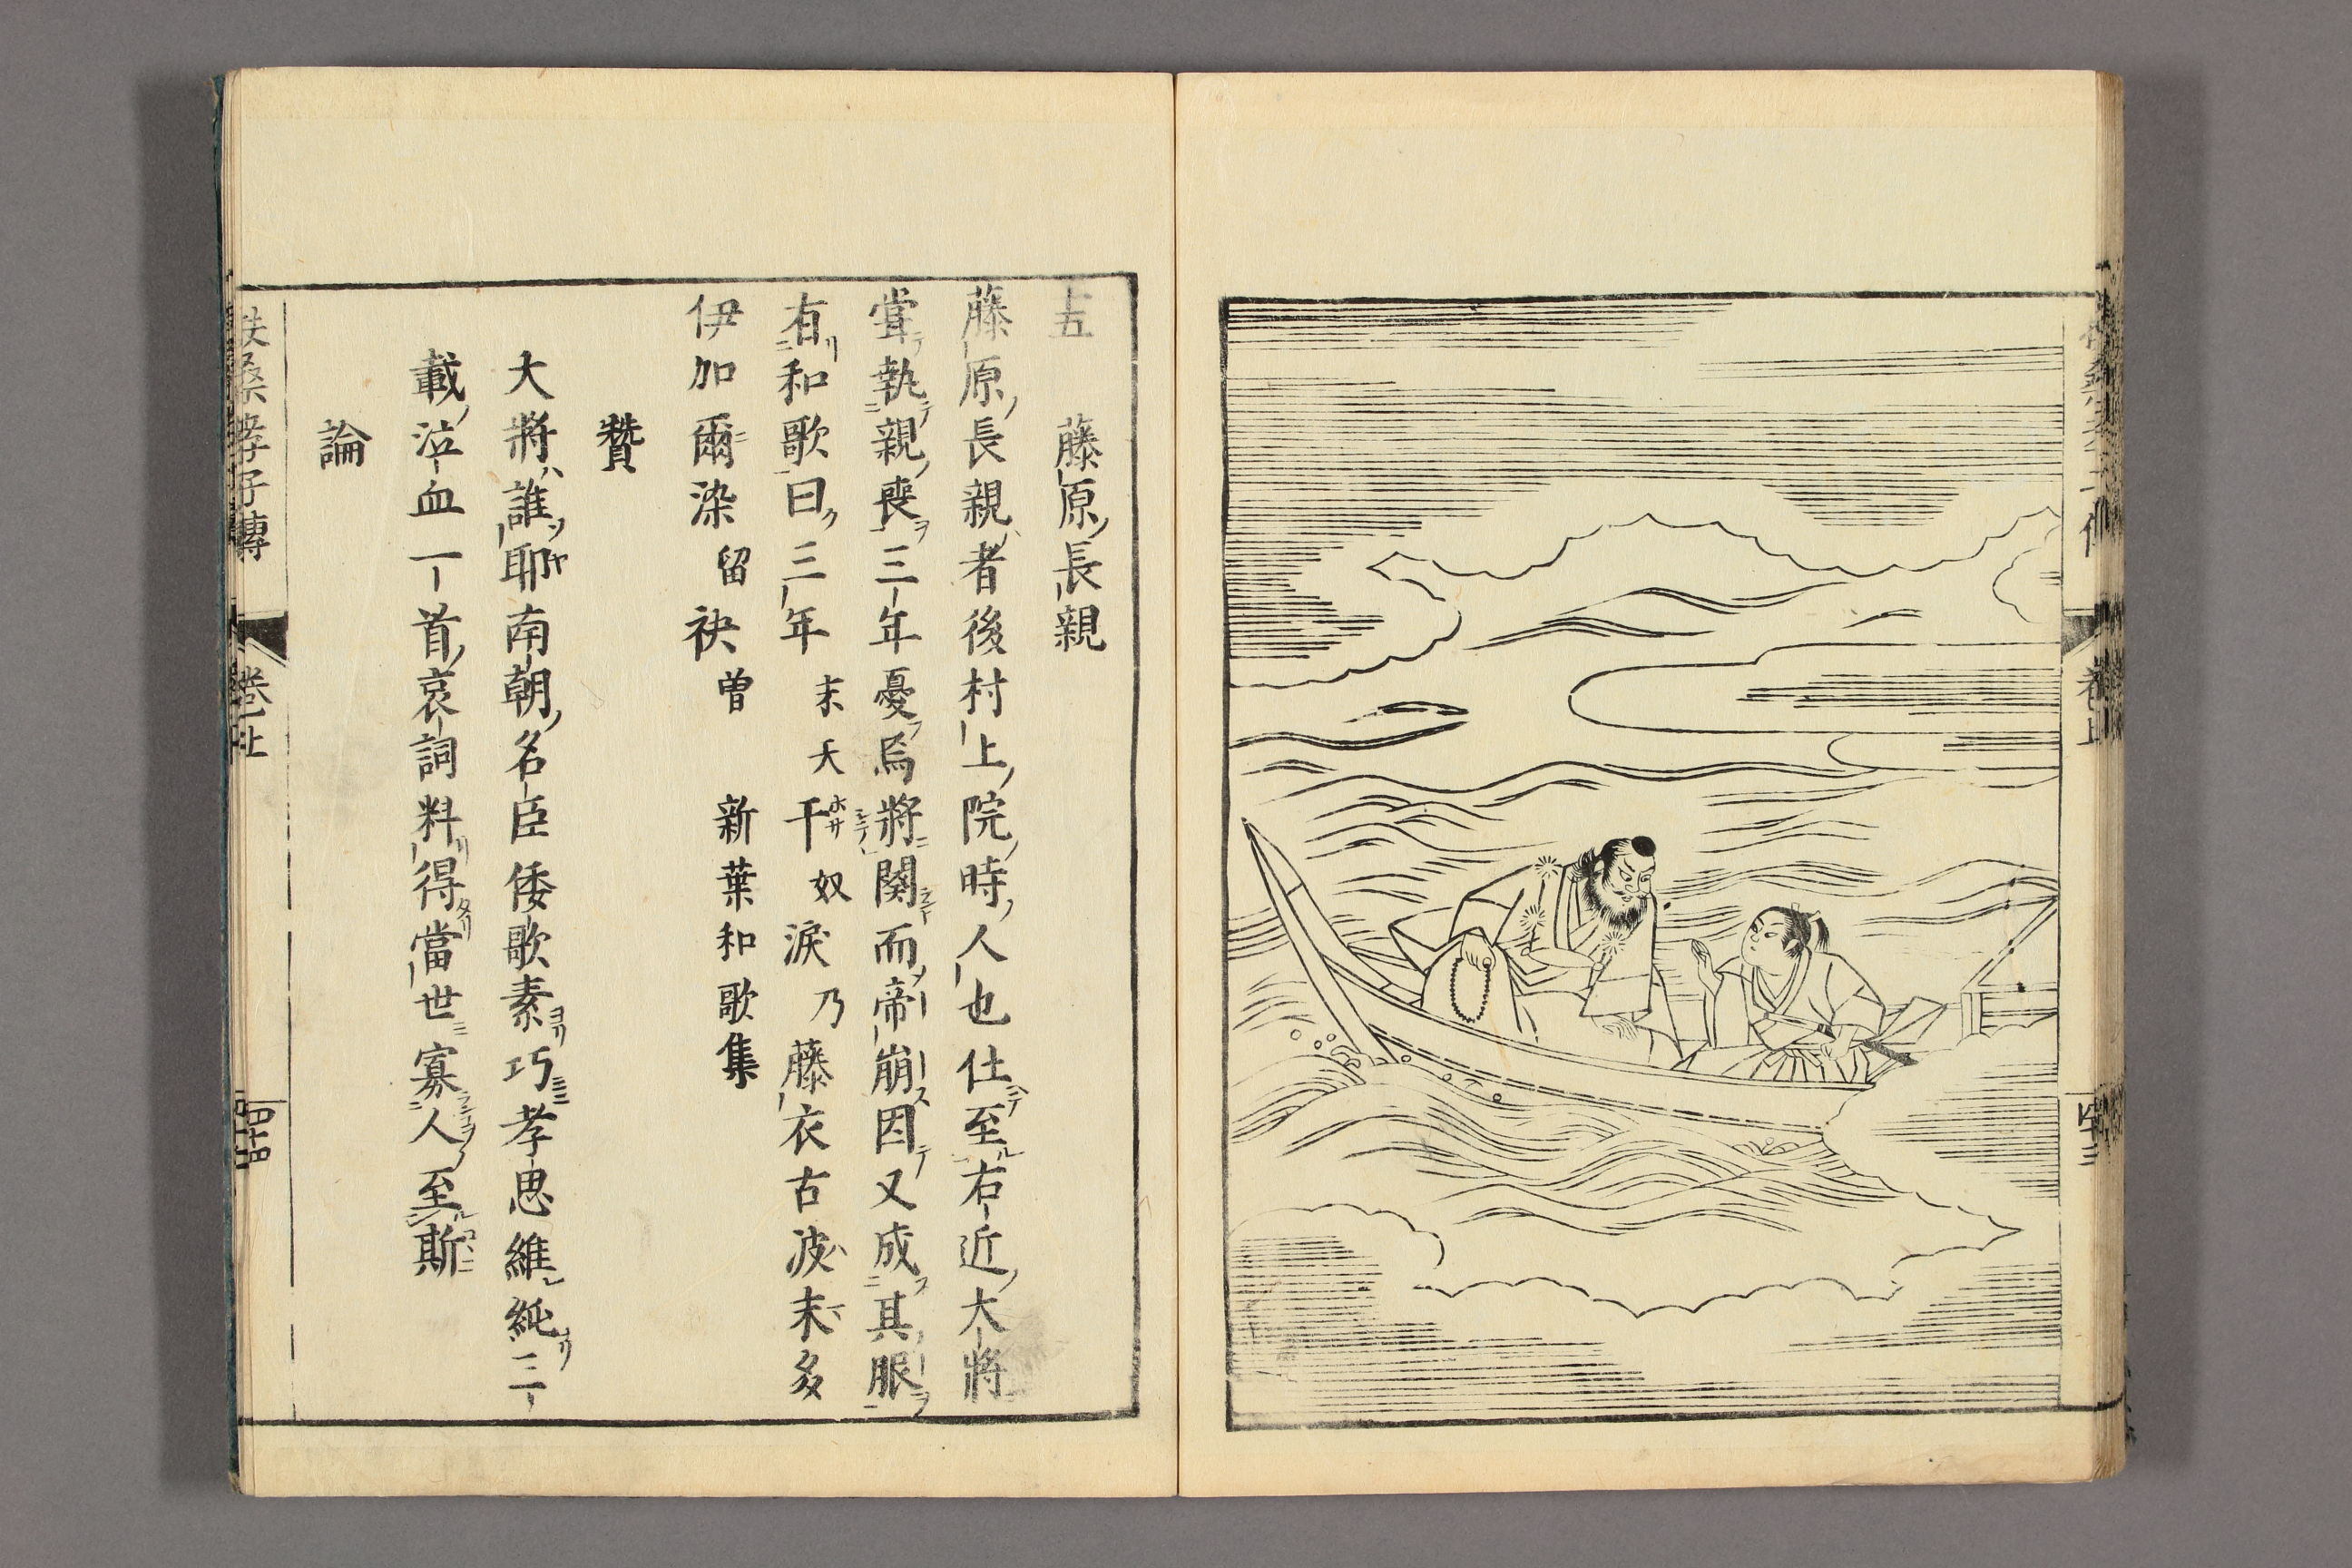 卷上
四十三
十五　藤原長親
藤原長親者後村上院時人也仕至右近大將
嘗執親喪三年憂焉將闋而帝崩因又成其服
有和歌曰三年末天干奴淚乃藤衣古波末多
伊加爾染留袂曽　新葉和歌集
贊
大將誰耶南朝名臣倭歌素巧孝思維純三
載泣血一首哀詞料得當世寡人至斯
論
扶桑孝子傳　卷上　四十四